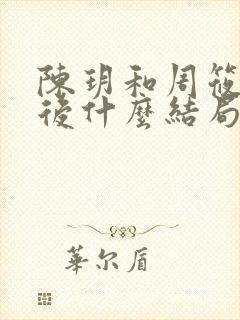 陳玥和周筱
後什麼結局
華尔盾